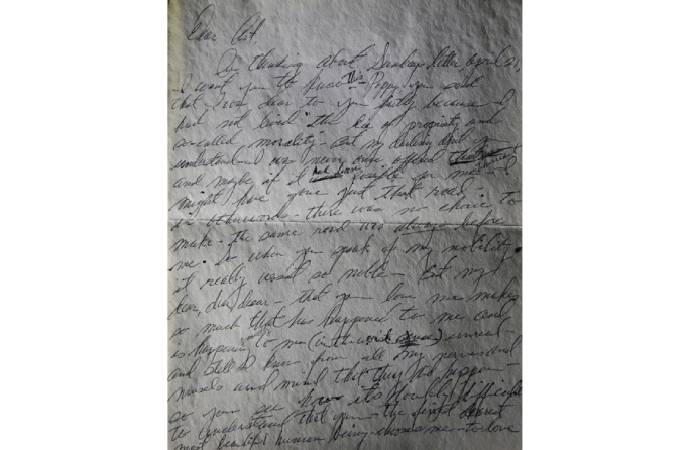 Dear Art
thinking about Sunday's letter April 21,
I want you to know this Poppy you said
that I was dear to you partly because I
had not lived the lie of propriety and
so-called morality - but my darling
understand - I was never once offered
and maybe if I had been possible for me - I
might have gone just that road -
in otherwords - there was no choice to
make - the same road was always before
me. So when you speak of my nobility -
it really wasn't so noble - But my
dear, dear, dear - that you love me makes
so much that has happened to me and
is happening to me (in the unreal -
and still I know from all my nerves and
muscles and mind that they did happen -
so you see how it's Horribly difficult
to understand that you - the dearest
most beautiful human being chooses me - to love